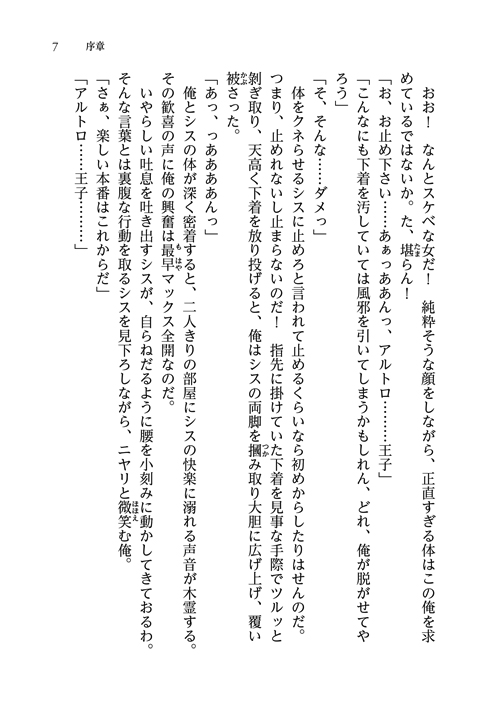 7　序章
　おお！　なんとスケベな女だ！　純粋そうな顔をしながら、正直すぎる体はこの俺を求
めているではないか。た、堪らん！
「お、お止め下さい……あぁっああんっ、アルトロ………王子」
「こんなにも下着を汚していては風邪を引いてしまうかもしれん、どれ、俺が脱がせてや
ろう」
「そ、そんな……ダメっ」
　体をクネらせるシスに止めろと言われて止めるくらいなら初めからしたりはせんのだ。
つまり、止めれないし止まらないのだ！　指先に掛けていた下着を見事な手際でツルッと
剝ぎ取り、天高く下着を放り投げると、俺はシスの両脚を摑み取り大胆に広げ上げ、覆い
被さった。
「あっ、っああああんっ」
　俺とシスの体が深く密着すると、二人きりの部屋にシスの快楽に溺れる声音が木霊する。
その歓喜の声に俺の興奮は最早マックス全開なのだ。
　いやらしい吐息を吐き出すシスが、自らねだるように腰を小刻みに動かしてきておるわ。
そんな言葉とは裏腹な行動を取るシスを見下ろしながら、ニヤリと微笑む俺。
「さぁ、楽しい本番はこれからだ」
「アルトロ……王子………」